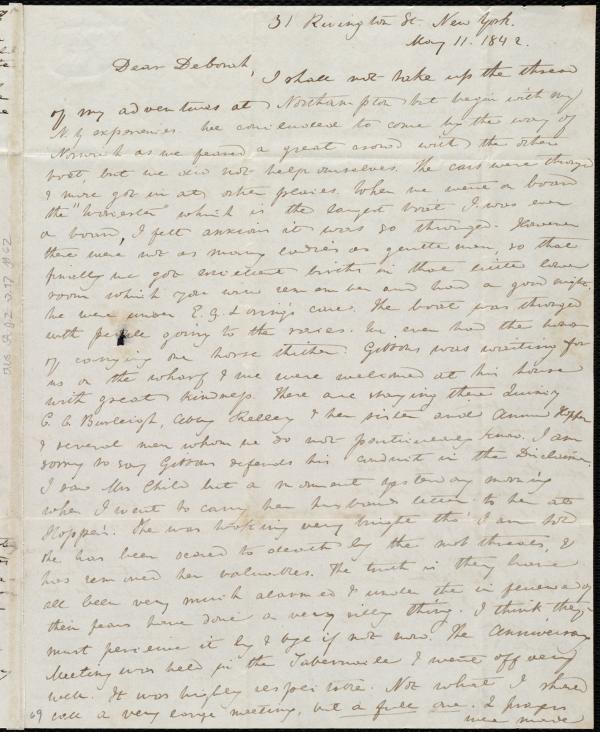 31 Rivington St. New York.
May 11. 1842.
Dear Deborah,
I shall not take up the thread
of my adventures at Northampton but begin with my
N.Y experiences. We concluded to come by the way of
Norwich as we feared a great crowd with the other
boat, but we did not help ourselves. The cars were thronged
& more got in at other places. When we were a board
the "Worcester" which is the largest boat I was ever
a board, I felt anxious it was so thronged. However
there were not as many ladies as gentlemen, so that
finally we got excellent births in that little lower
room which you will remember and had a good night.
We were under E. G. Loring's care. The boat was thronged
with people going to the races. We even had the honor
of carrying one horse thither. Gibbons was waiting for
us on the wharf & we were welcomed at his house
with great kindness. There are staying there Quincy
C. C. Burleigh, Abby Kelley & her sister and Anna Hopper
& several men whom we do not particularly know. I am
sorry to say Gibbons defends his conduct in the Disclaimer.
I saw Mrs Child but a moment yesterday morning
when I went to carry her husband's letter to her at
Hopper's. She was looking very bright tho' I am told
she has been scared to death by the mob threats, &
has removed her valuables. The truth is they have
all been very much alarmed & under the in fluence of
their fears have done a very silly thing. I think they
must perceive it by & bye if not now. The Anniversary
Meeting was held in the Tabernacle & went off very
well. It was highly respectable. Not what I should
call a very large meeting, but a full one. 2 prayers
were made
69